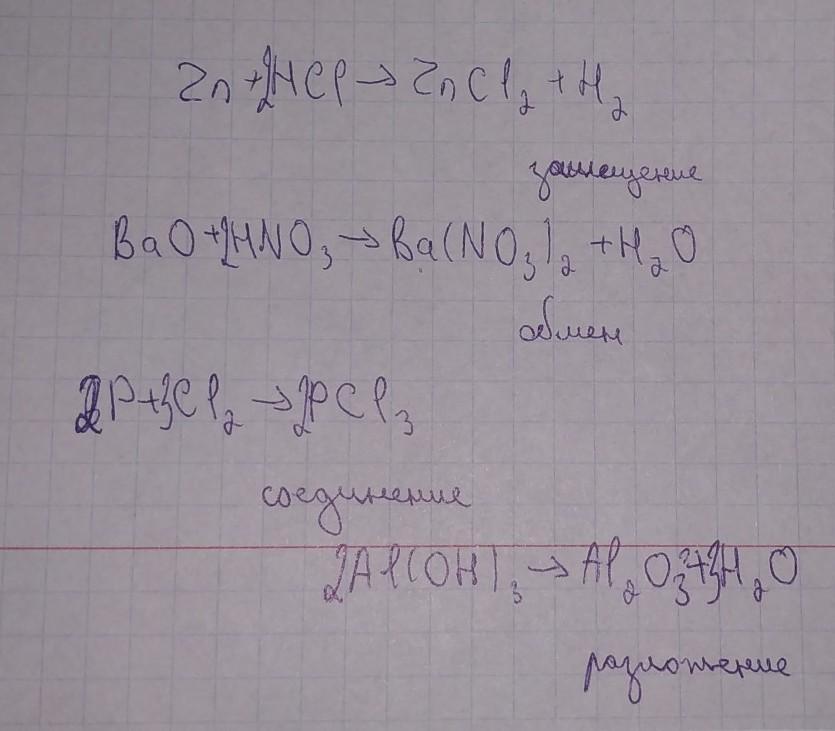 Zn + 2HCl → ZnCl₂ + H₂
замещение
BaO + 2HNO₃ → Ba(NO₃)₂ + H₂O
обмен
2P + 3Cl₂ → 2PCl₃
соединение
2Al(OH)₃ → Al₂O₃ + 3H₂O
разложение